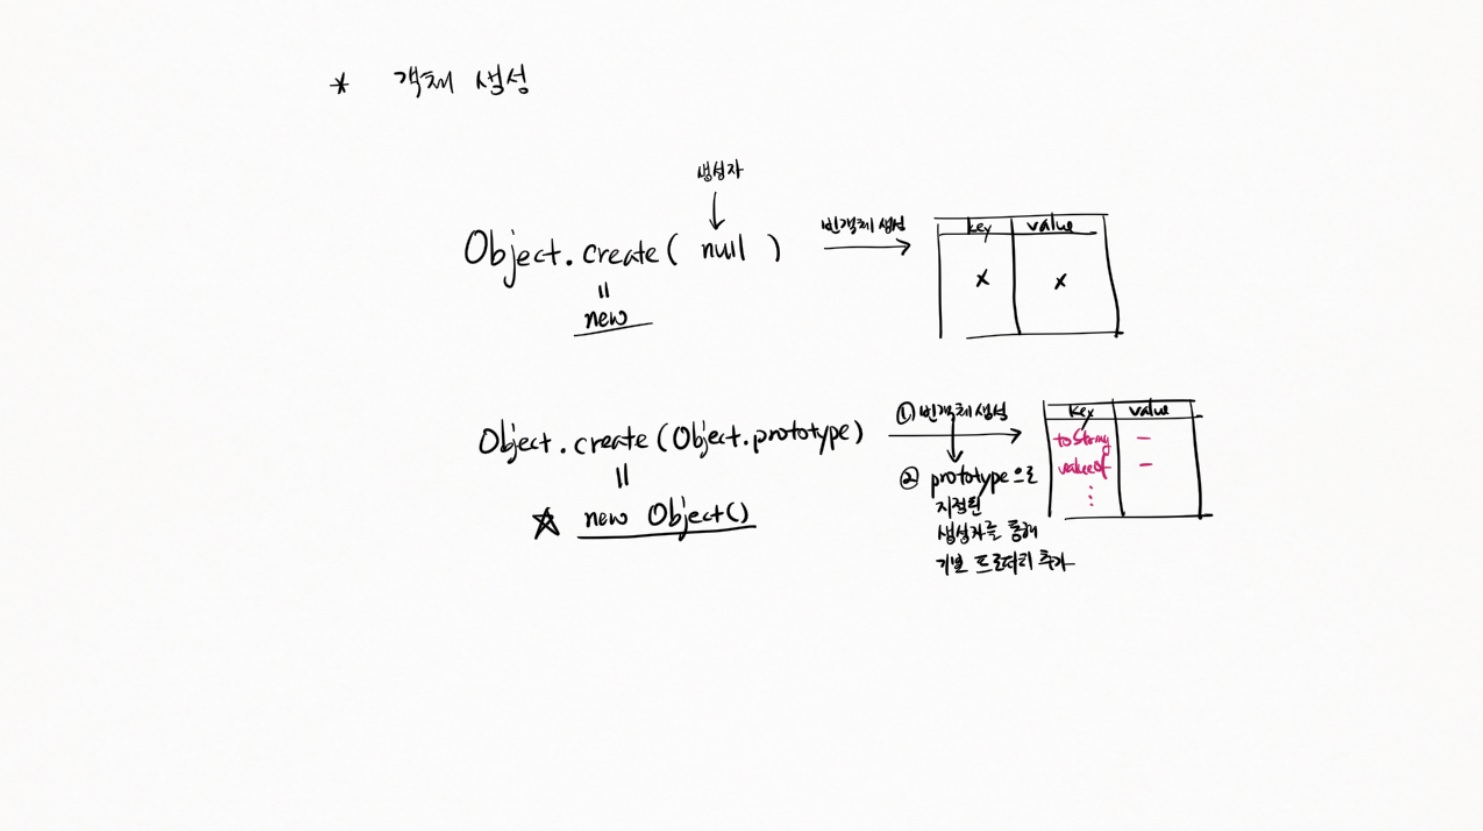 * 객체 생성
생성자
↓
Object.create( null )
빈객체 생성
→
key value
x x
=
new
Object.create(Object.prototype)
① 빈객체 생성
→
↓
② prototype으로
지정된
생성자를 통해
기본 프로퍼티 추가
key value
toString –
valueOf –
⋮
=
☆ new Object()